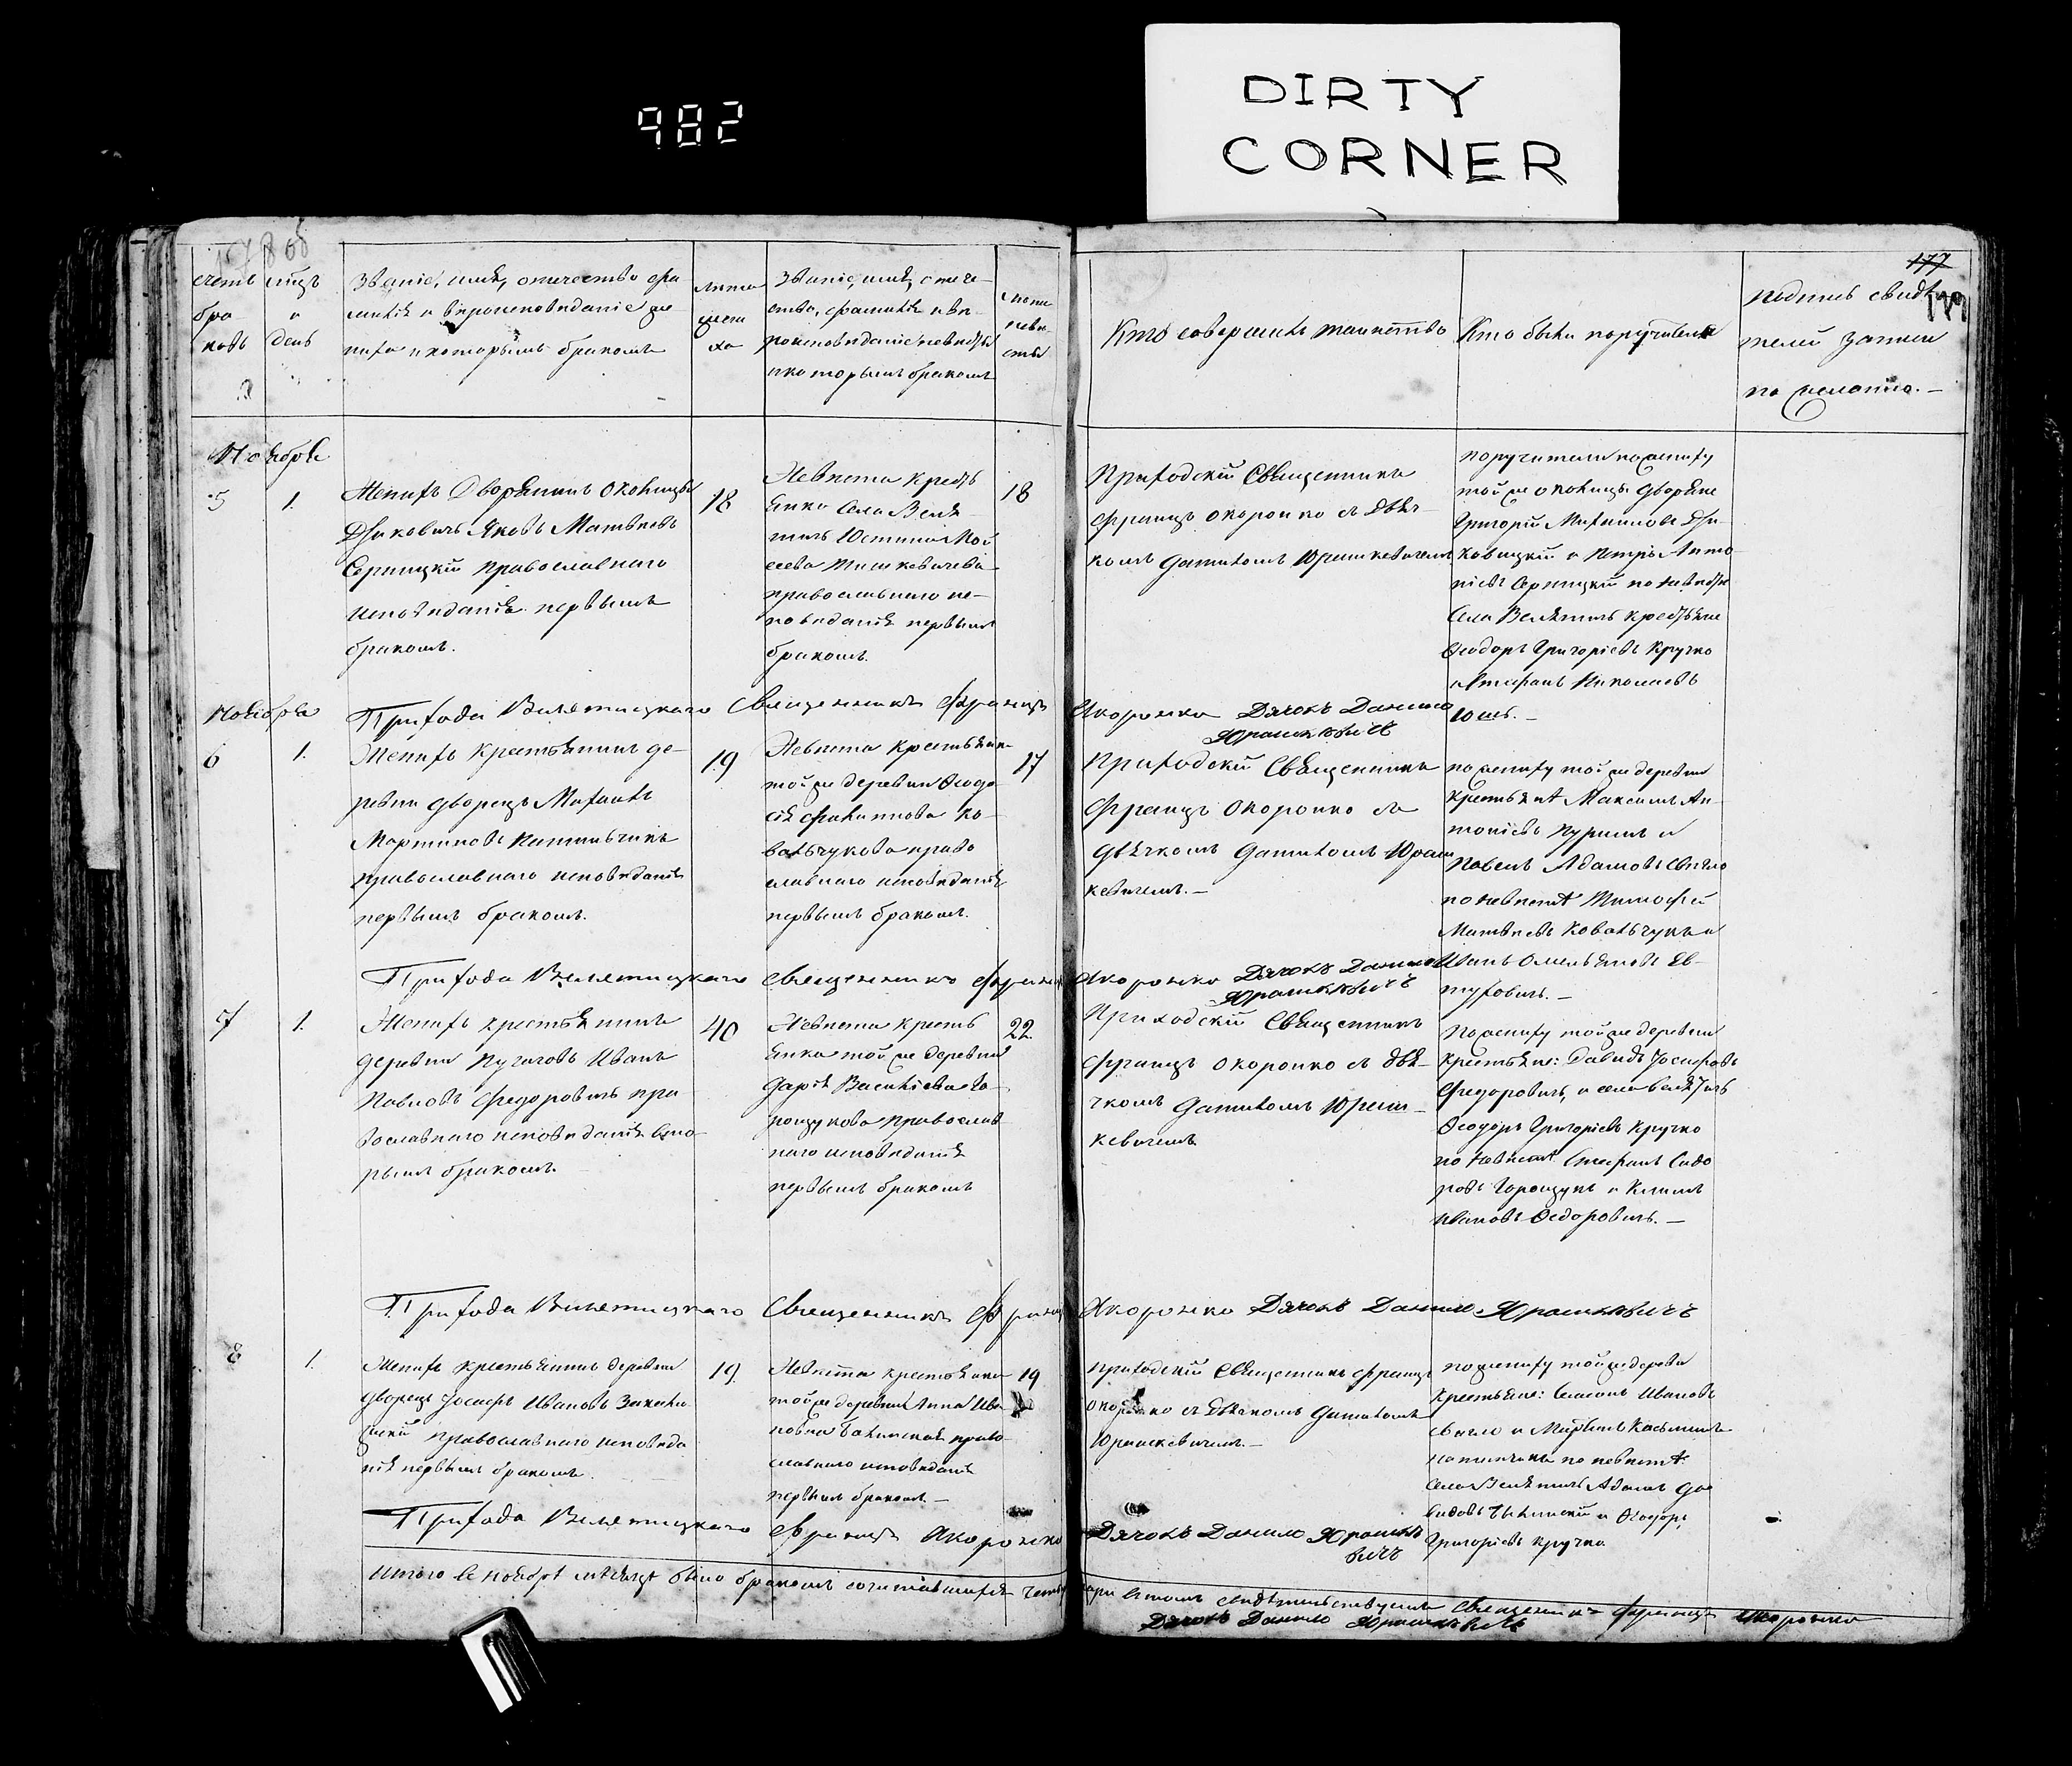 982
DIRTY
CORNER
1865
177
179
счетъ
бра-
ковъ
мѣцъ
и
день
Званіе, имя, отчество фа
милія и вѣроисповѣданіе же
ниха и которымъ бракомъ
Лѣта
жени
ха
Званіе, имя, отче-
ство, фамилія и вѣ-
роисповѣданіе невѣсты
и которымъ бракомъ
Лѣта
невѣ-
сты
Кто совершалъ таинство
Кто были поручители
подпись свидѣ-
телей записи
по желанію. —
Ноября
5
1.
Женихъ Дворянинъ околицы
Яковъ Матвѣевъ
Серницкій православнаго
исповѣданія первымъ
бракомъ.
18
Невѣста кресть
янка села Веля-
тичъ Юстина Мой
сеева Тишкевичева
православнаго ис-
повѣданія первымъ
бракомъ.
18
Приходскій Священникъ
Францъ Окоронко съ дья-
комъ Даниломъ Юрашкевичемъ
поручители по жениху
той же околицы дворяне
Григорій Михайловъ
и Петръ Анто-
ніевъ Серницкій по невѣстѣ
села Велятичъ крестьяне
Ѳеодоръ Григоріевъ Кручко
и Стефанъ Николаевъ
Юшъ. —
Прихода Велятицкаго Священникъ Францъ Окоронко Дячокъ Данило
Юрашкевичъ
Ноября
6
1.
Женихъ крестьянинъ де-
ревни Дворецъ Михаилъ
Мартиновъ
православнаго исповѣданія
первымъ бракомъ.
19
Невѣста крестьянка
той же деревни Ѳеодо
сія Филиппова Ко-
вальчукова право
славнаго исповѣданія
первымъ бракомъ.
17
Приходскій Священникъ
Францъ Окоронко съ
дьячкомъ Даниломъ Юраш
кевичемъ. —
по жениху той же деревни
крестьянѣ Максимъ Ан-
тоніевъ и
Павелъ Адамовъ
по невѣстѣ Тимофей
Матвѣевъ Ковальчукъ и
Иванъ Омельяновъ Ев-
туховичъ. —
Прихода Велятицкаго Священникъ Францъ Окоронко Дячокъ Данило
Юрашкевичъ
7
1.
Женихъ крестьянинъ
деревни Пугачовъ Иванъ
Павловъ Федоровичъ пра
вославнаго исповѣданія вто-
рымъ бракомъ.
40
Невѣста кресть
янка той же деревни
Дарія Василіева Го-
рощукова православ
наго исповѣданія
первымъ бракомъ
22.
Приходскій Священникъ
Францъ Окоронко съ дья-
чкомъ Даниломъ Юраш-
кевичемъ
По жениху той же деревни
крестьяне: Давидъ Іосифовъ
Федоровичъ, и села Велятичъ
Ѳеодоръ Григоріевъ Кручко
по невѣстѣ Стефанъ Сидо
ровъ Горощукъ и Климъ
Ивановъ Ѳедоровичъ. —
Прихода Велятицкаго Священникъ Францъ Окоронко Дячокъ Данило Юрашкевичъ
8
1.
Женихъ крестьянинъ деревни
Дворецъ Іосифъ Ивановъ
православнаго исповѣда
нія первымъ бракомъ.
19.
Невѣста крестьянка
той же деревни Анна Ива
новна право-
славнаго исповѣданія
первымъ бракомъ. —
19
Приходскій Священникъ Францъ
Окоронко съ дьякомъ Даниломъ
Юрашкевичемъ. —
по жениху той же деревни
крестьяне: Ивановъ
и
по невѣстѣ
села Велятичъ Адамъ Да
видовъ и Ѳеодоръ
Григоріевъ Кручко
Прихода Велятицкаго Францъ Окоронко Дячокъ Данило Юрашке
вичъ
Итого въ ноябрѣ мѣсяцѣ было бракомъ сочитавшихся четыре пары въ томъ свидѣтельствуемъ Священникъ Францъ Окоронко
Дячокъ Данило Юрашкевичъ